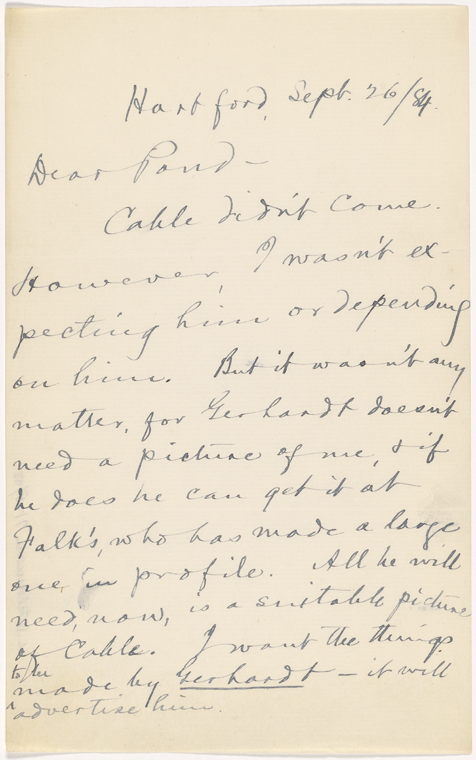 Hartford, Sept. 26/84.
Dear Pond —
Cable didn't come.
However, I wasn't ex-
pecting him or depending
on him. But it wasn't any
matter, for Gerhardt doesn't
need a picture of me, & if
he does he can get it at
Falk's, who has made a large
one, in profile. All he will
need, now, is a suitable picture
of Cable. I want the things
to be
made by Gerhardt — it will
^advertise him.